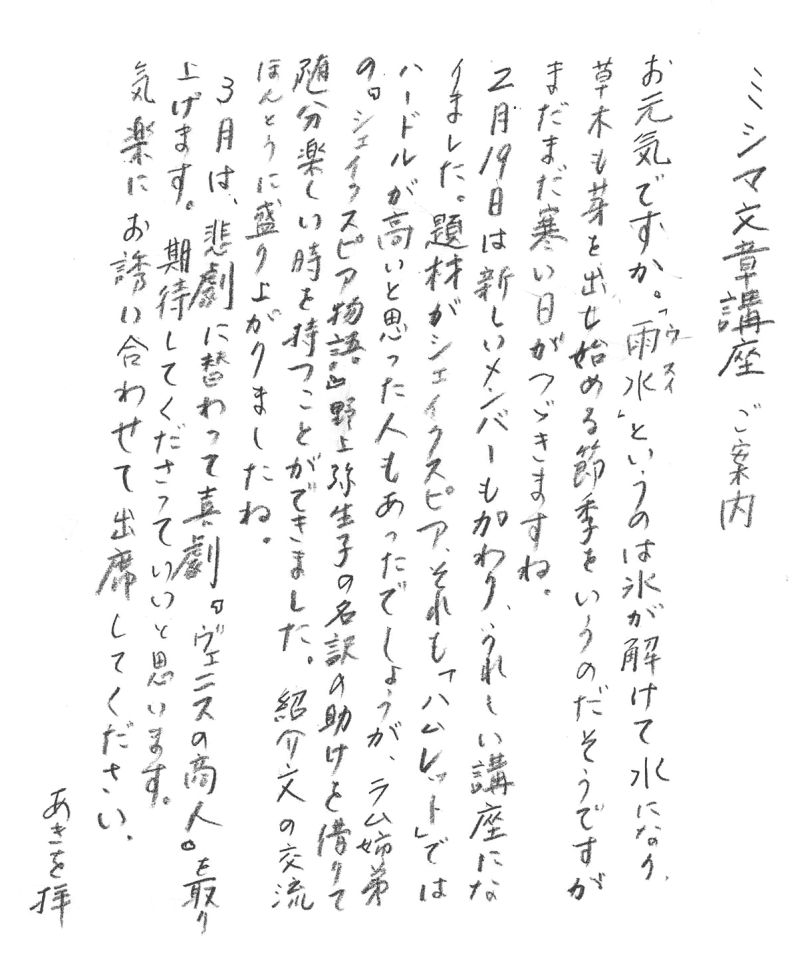 ミシマ文章講座 ご案内
お元気ですか。「雨水」というのは氷が解けて水になり、
ウスイ
草木も芽を出し始める節季をいうのだそうですが
まだまだ寒い日がつゞきますね。
2月19日は新しいメンバーも加わり、うれしい講座にな
りました。題材がシェイクスピア、それも「ハムレット」では
ハードルが高いと思った人もあったでしょうが、ラム姉弟
の『シェイクスピア物語』野上弥生子の名訳の助けを借りて
随分楽しい時を持つことができました。紹介文の交流
ほんとうに盛り上がりましたね。
3月は、悲劇に替わって喜劇『ヴェニスの商人』を取り
上げます。期待してくださっていいと思います。
気楽にお誘い合わせて出席してください。
あきを拝